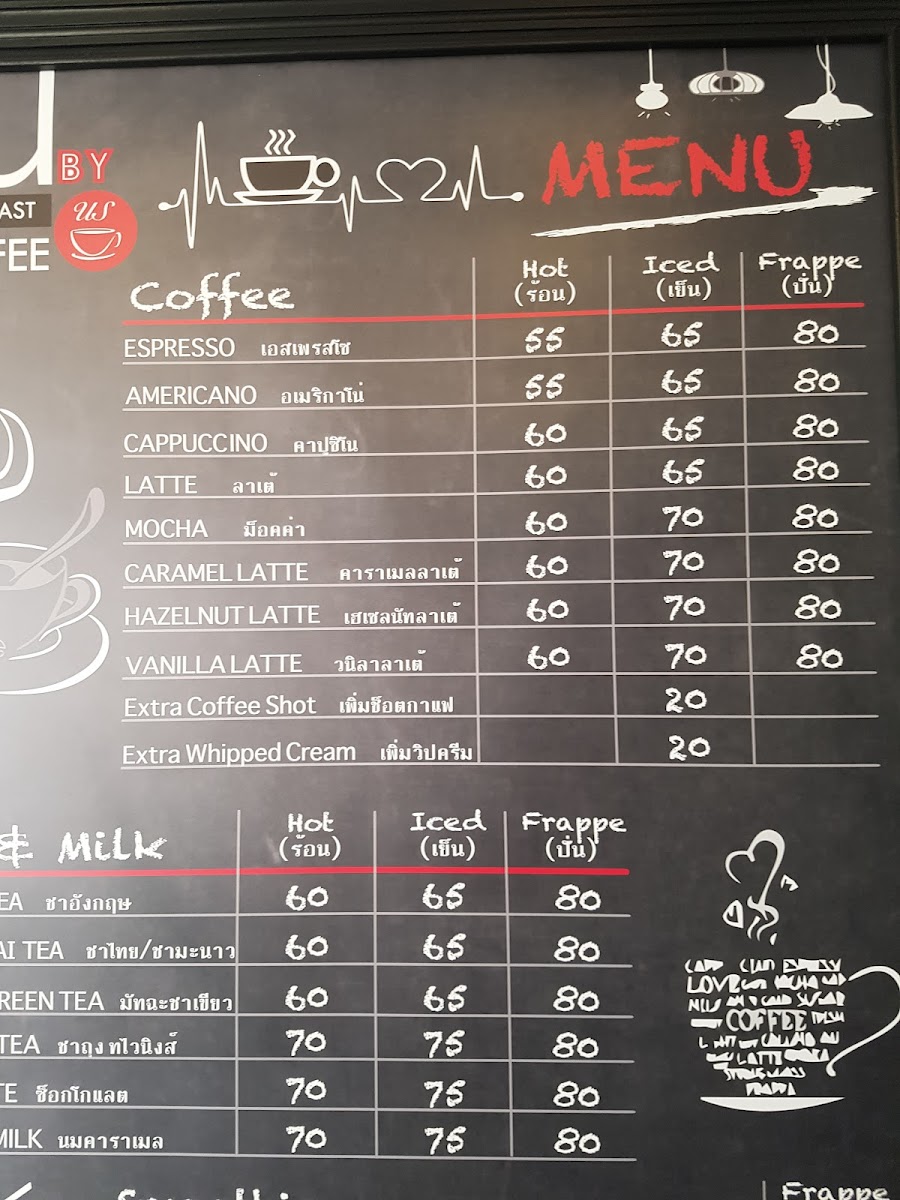 BY
US
AST
FEE
MENU
Coffee Hot (ร้อน) Iced (เย็น) Frappe (ปั่น)
ESPRESSO เอสเพรสโซ 55 65 80
AMERICANO อเมริกาโน่ 55 65 80
CAPPUCCINO คาปูชิโน 60 65 80
LATTE ลาเต้ 60 65 80
MOCHA ม็อคค่า 60 70 80
CARAMEL LATTE คาราเมลลาเต้ 60 70 80
HAZELNUT LATTE เฮเซลนัทลาเต้ 60 70 80
VANILLA LATTE วนิลาลาเต้ 60 70 80
Extra Coffee Shot เพิ่มช็อตกาแฟ 20
Extra Whipped Cream เพิ่มวิปครีม 20
& Milk Hot (ร้อน) Iced (เย็น) Frappe (ปั่น)
EA ชาอังกฤษ 60 65 80
AI TEA ชาไทย/ชามะนาว 60 65 80
REEN TEA มัทฉะชาเขียว 60 65 80
TEA ชาถุง ทไวนิงส์ 70 75 80
TE ช็อกโกแลต 70 75 80
MILK นมคาราเมล 70 75 80
LOVE
COFFEE
LATTE
Frappe